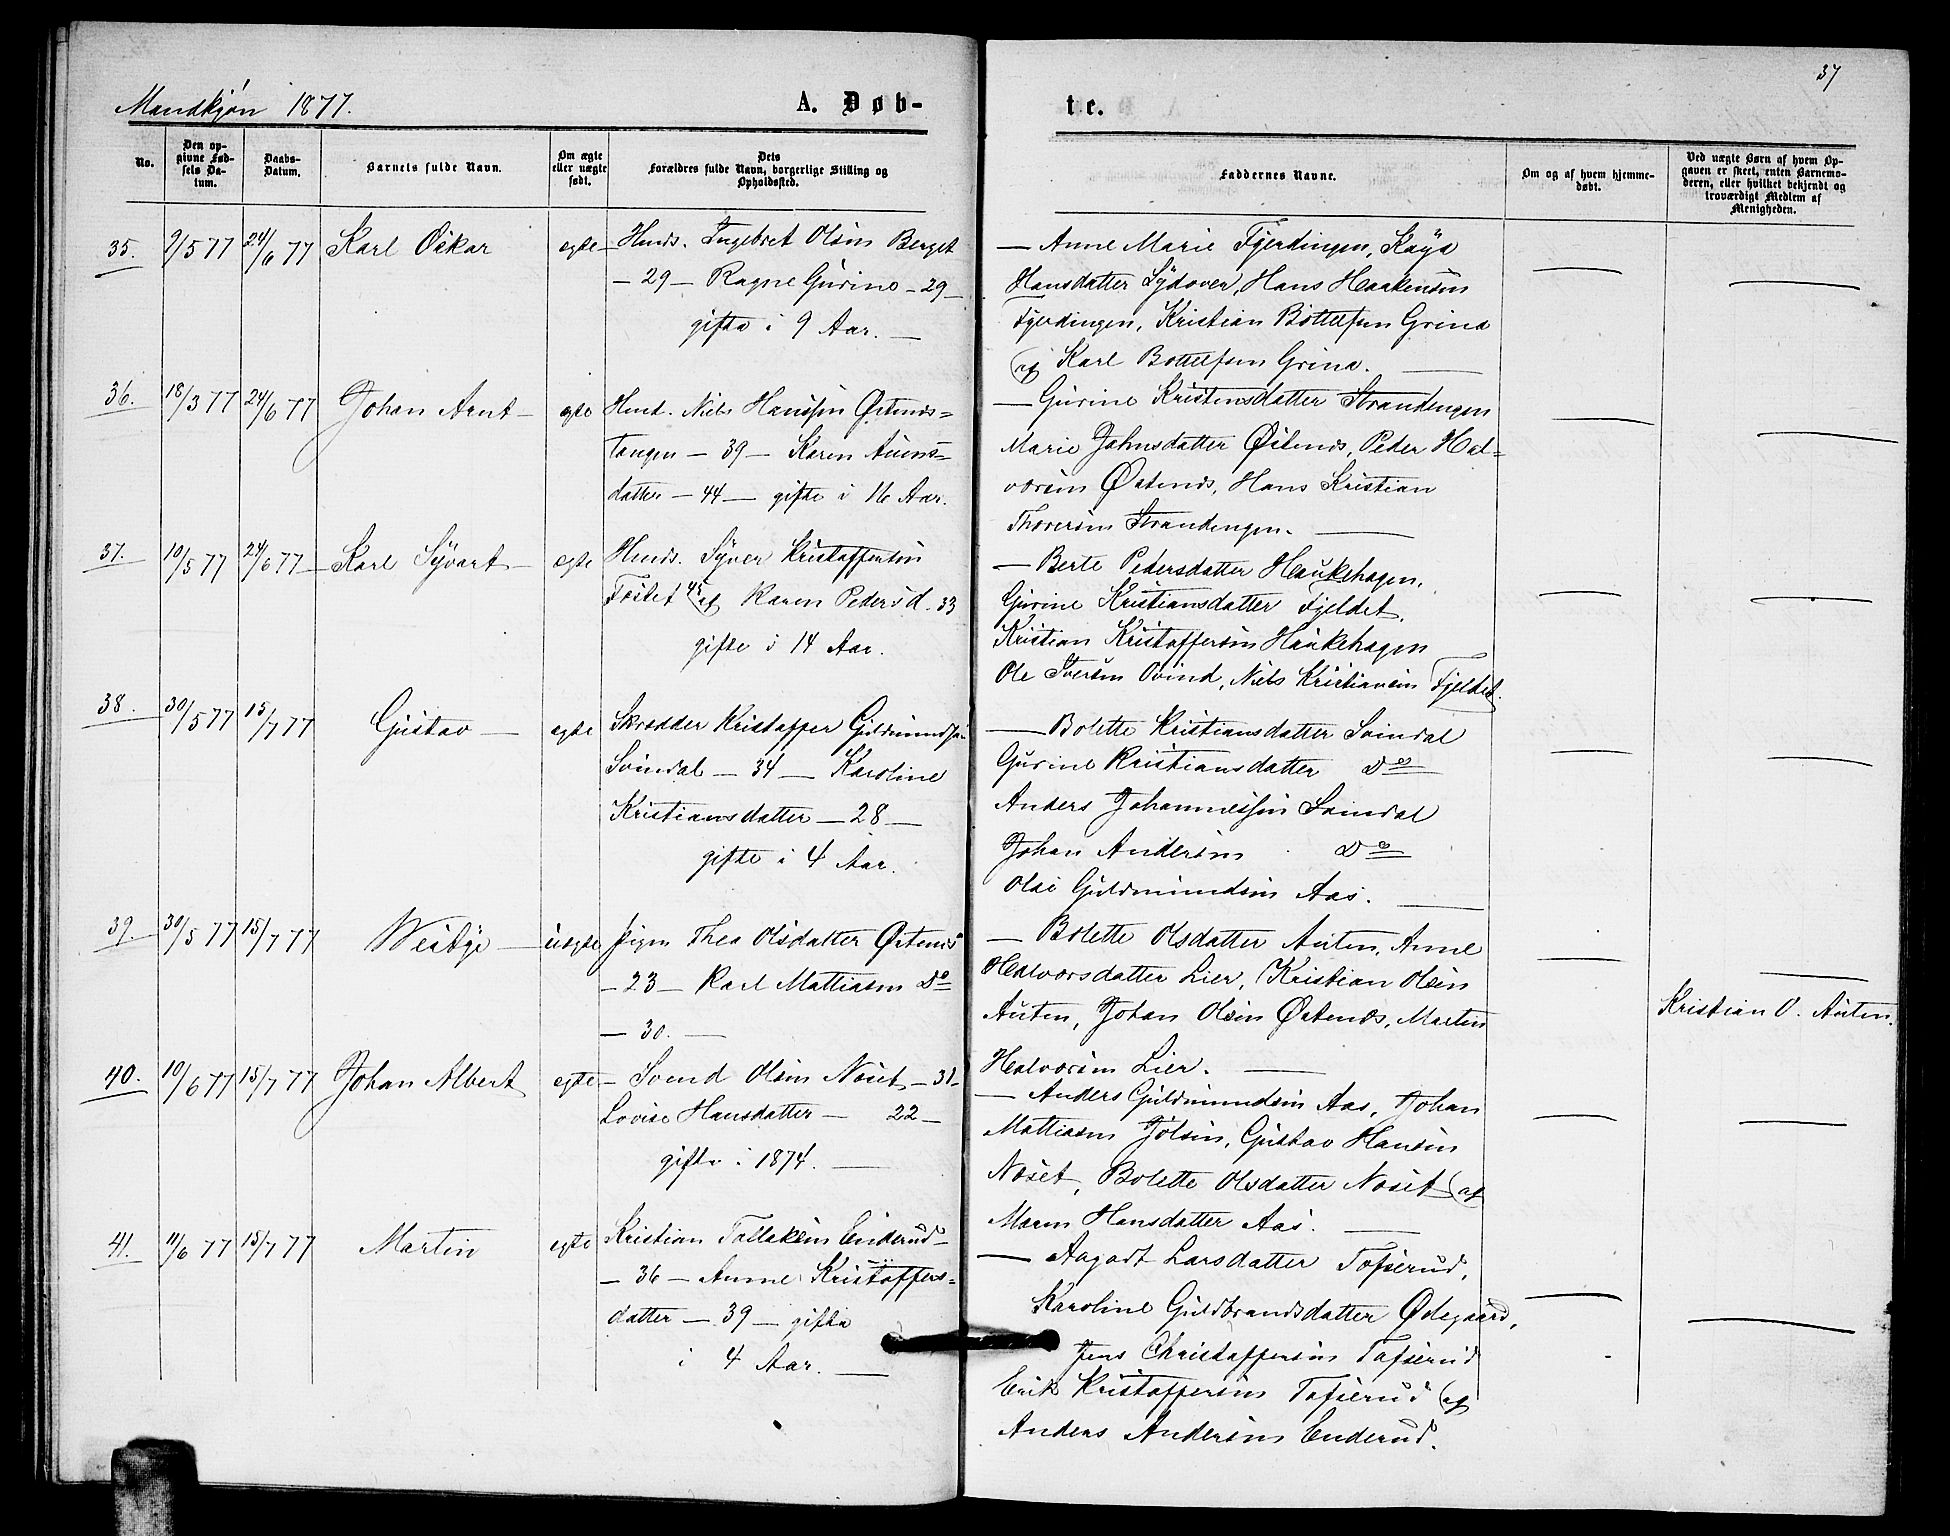 37
Mandkjøn 1877.
A. Døb-
te.
No.
Den op-
givne Fød-
sels Da-
tum.
Daabs-
Datum.
Barnets fulde Navn.
Om ægte
eller uægte
født.
Dets
Forældres fulde Navn, borgerlige Stilling og
Opholdssted.
Faddernes Navne.
Om og af hvem hjemme-
døbt.
Ved uægte Børn af hvem Op-
gaven er skeet, enten Barnemo-
deren, eller hvilket bekjendt og
troværdigt Medlem af
Menigheden.
35. 9/5 77 24/6 77 Karl Oskar egte
Husds. Ingebret Olsen Berget
— 29 — Ragne Gurine — 29 —
gifte i 9 Aar. —
— Anne Marie Fjerdingen, Kaya
Hansdatter Sydover, Hans Haakensen
Fjerdingen, Kristian Bottelfsen Grina
og Karl Bottelfsen Grina. —
36. 18/3 77 24/6 77 Johan Arnt — egte
Husd. Niels Hanssen Østends=
tangen — 39 — Karen Auens=
datter — 44 — gifte i 16 Aar.
— Gurine Kristensdatter Strandengen
Marie Johnsdatter Østends, Peder Hal=
vorsen Østends, Hans Kristian
Thorersen Strandengen. —
37. 10/5 77 24/6 77 — Karl Syvart — egte
Husds. Syver Kristoffersen
Fostet 45 og Karen Pedersd. 33
gifte i 14 Aar.
— Berte Pedersdatter Haukehagen,
Gurine Kristiansdatter Fjeldet,
Kristian Kristoffersen Haukehagen
Ole Iversen Ovind, Niels Kristiansen Fjeldet.
38. 30/5 77 15/7 77 Gustav — egte
Skrædder Kristoffer Guldmundsen
Svindal — 34 — Karoline
Kristiansdatter — 28 —
gifte i 4 Aar.
— Bolette Kristiansdatter Svindal
Gurine Kristiansdatter Do
Anders Johannessen Svindal
Johan Andersen Do
Olai Guldmundsen Aas. —
39. 30/5 77 15/7 77 Westye — uægte
Pigen Thea Olsdatter Østends
— 23 — Karl Mattiasen Do
— 30. —
— Bolette Olsdatter Auten, Anne
Halvorsdatter Lier, Kristian Olsen
Auten, Johan Olsen Østends, Martin
Halvorsen Lier. —
Kristian O. Auten.
40. 10/6 77 15/7 77 Johan Albert egte
— Svend Olsen Noset — 31 —
Lovise Hansdatter — 22 —
gifte i 1874. —
— Anders Guldmundsen Aas, Johan
Mattiasen Jølsen, Gustav Hansen
Noset, Bolette Olsdatter Noset og
Maren Hansdatter Aas. —
41. 11/6 77 15/7 77 Martin egte
Kristian Tollaksen Enderud
— 36 — Anne Kristoffers=
datter — 39 — gifte
i 4 Aar. —
— Aagodt Larsdatter Tofserud,
Karoline Guldbrandsdatter Ødegaard,
Jens Christoffersen Tofserud
Erik Kristoffersen Tofserud og
Anders Andersen Enderud.